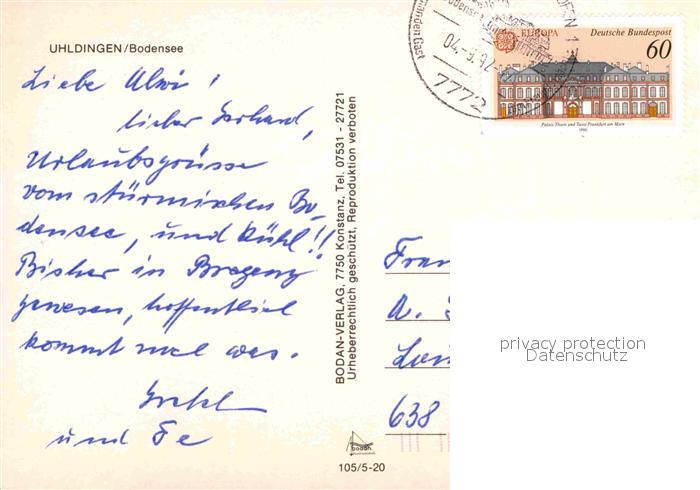 UHLDINGEN/Bodensee
Liebe Ulvi!
lieber Gerhard,
Urlaubsgrüsse
vom stürmischen Bo-
densee, und kühl!!
Bisher in Bregenz
gewesen, hoffentlich
kommt mal was.
und
BODAN-VERLAG, 7750 Konstanz, Tel. 07531 - 27721
Urheberrechtlich geschützt, Reproduktion verboten
bodan
105/5-20
04.-9.92
7772
EUROPA
Deutsche Bundespost
60
Palais Thurn und Taxis Frankfurt am Main
1990
Fran
A.
638
privacy protection
Datenschutz